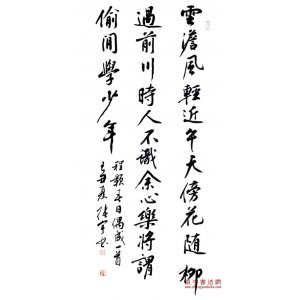 雲澹風輕近午天傍花隨柳
過前川時人不識余心樂將謂
偷閒學少年
程顥春日偶成一首